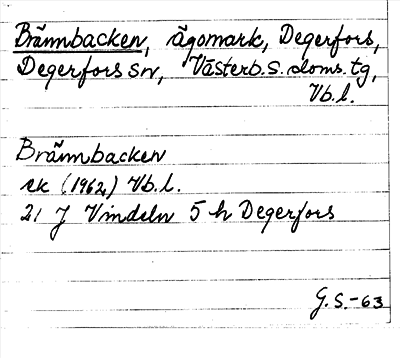 Brännbacken, ägomark, Degerfors,
Degerfors sn, Västerb. s. doms. tg,
Vb. l.
Brännbacken
ek (1962) Vb. l.
21 J Vindeln 5 h Degerfors
G. S. -63